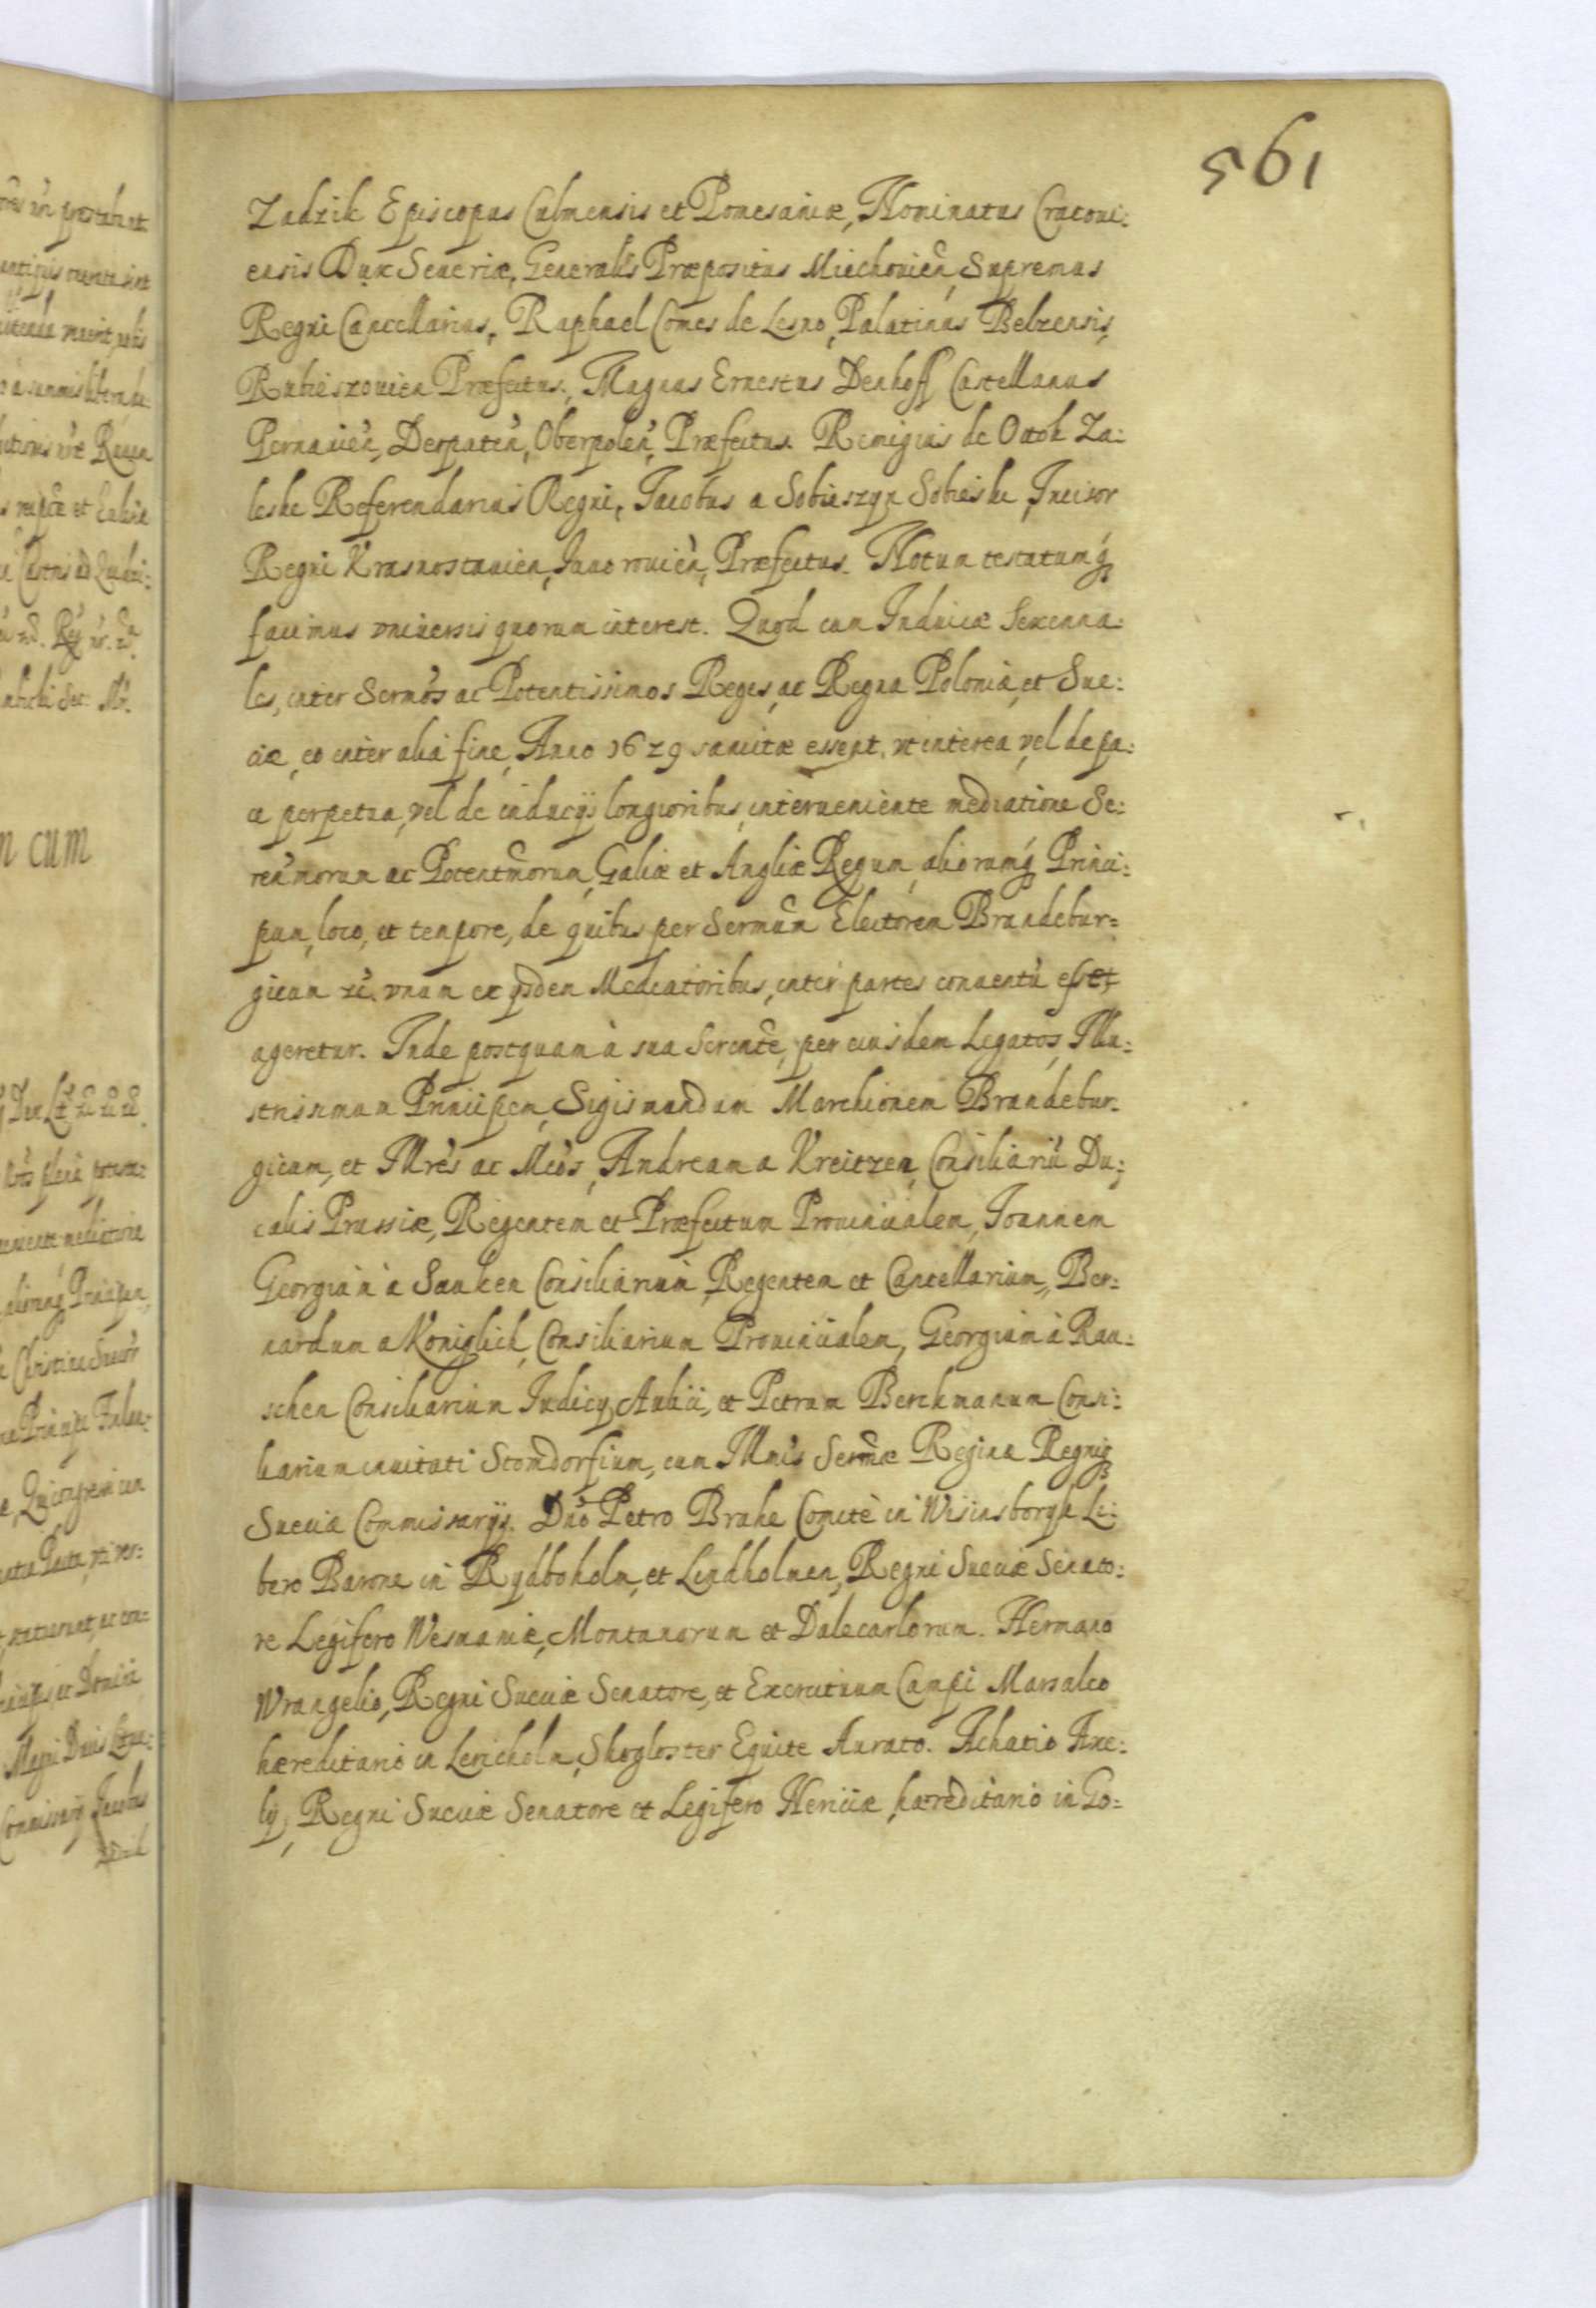 561
Zadzik Episcopus Culmensis et Pomesaniæ, Nominatus Cracoui:
ensis Dux Seueriæ, Generalis Præpositus Miechouien̄, Supremus
Regni Cancellarius, Raphael Comes de Lesno, Palatinus Belzensis,
Rubieszouien Præfectus, Magnus Ernestus Denhoff Castellanus
Pernauien̄, Derpaten̄, Oberpolen̄, Præfectus. Remigius de Otok Za:
leski Referendarius Regni, Jacobus a Sobieszyn Sobieski, Incisor
Regni Krasnostauien, Jauorouien̄, Præfectus. Notum testatumq́
facimus vniuersis quorum interest. Quod cum Induciæ Sexenna:
les, inter Sermōs ac Potentissimos Reges, ac Regna Poloniæ, et Sue:
ciæ, eo inter alia fine, Anno 1629 sancitæ essent, vt interea, vel de pa:
ce perpetua, vel de inducijs longioribus, interueniente mediatione Se:
ren̄morum ac Potentm̄orum, Galiæ et Angliæ Regum, aliorumq́ Princi:
pum, loco, et tempore, de quibus per Sermum̄ Electorem Brandebur=
gicum uc̄ vnum ex ijsdem Mediatoribus, inter partes conuentū esset
ageretur. Inde postquam à sua Serentē, per eiusdem Legatos, Illu:
strissimum Principem, Sigismundum Marchionem Brandebur=
gicum, et Illrēs ac Mcōs, Andream a Kreitzen, Consiliariū Du:
calis Prussiæ, Regentem et Præfectum Prouincialem, Joannem
Georgium à Sauken Consiliarium, Regentem et Cancellarium, Ber:
nardum a Königlick, Consiliarium Prouincialem, Georgium à Rau:
schen Consiliarium Iudicij Aulici, et Petrum Berchmanum Consi:
liarium inuitati Stomdorfium, cum Illmis Sermæ Reginæ Regniq́
Sueciæ Commissarijs. Dn̄o Petro Brahe Comite in Wisinsborgh Li:
bero Barone in Rydboholm, et Lindholmen, Regni Sueciæ Senato:
re Legifero Wesmaniæ, Montanorum et Dalecarlorum. Hermano
Wrangelio, Regni Sueciæ Senatore, et Exercituum Campi Marsalco
hæreditario in Lenicholm, Skogloster Equite Aurato. Achatio Axe:
lij, Regni Sueciæ Senatore et Legifero Nericiæ, hæreditario in Go=